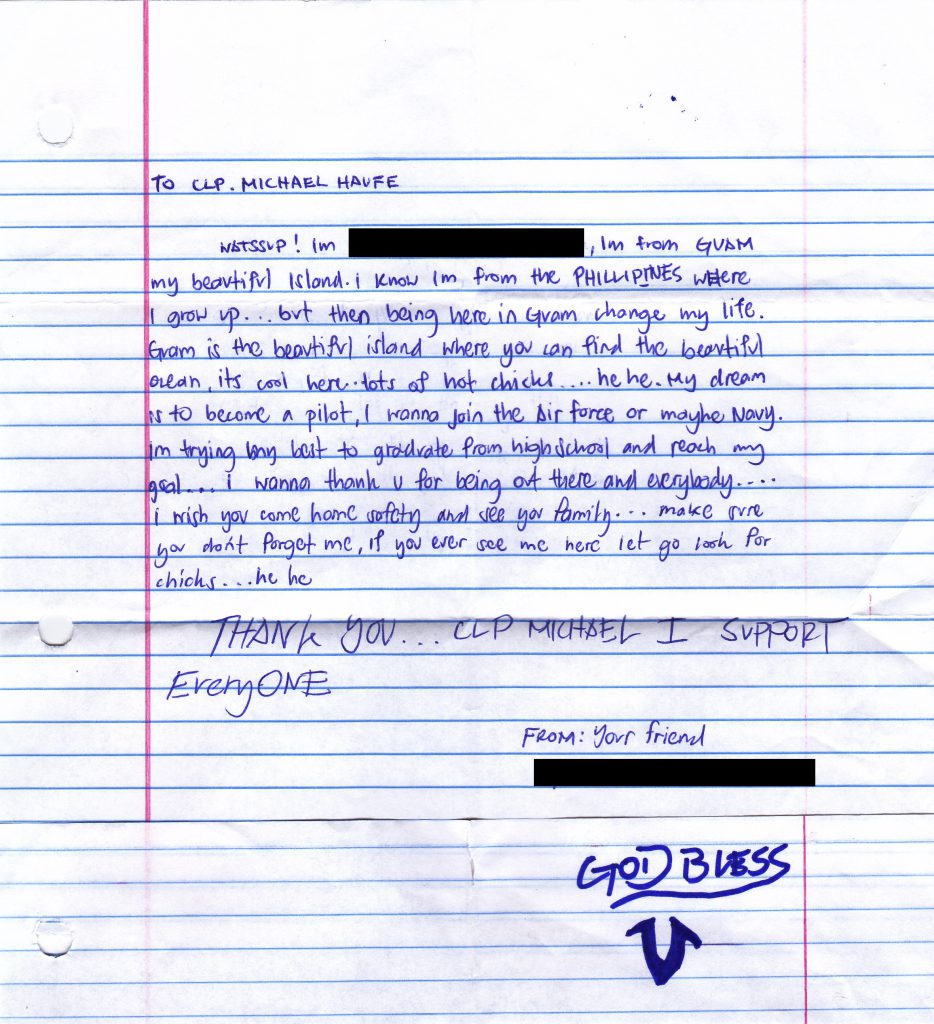 TO CLP. MICHAEL HAUFE
WATSSUP! Im , Im from GUAM
my beautiful Island. i know Im from the PHILLIPINES where
I grow up... but then being here in Guam change my life.
Guam is the beautiful island where you can find the beautiful
ocean, its cool here.. lots of hot chicks.... he he. My dream
is to become a pilot, I wanna join the Air force or maybe Navy.
Im trying my best to graduate from high school and reach my
goal.... i wanna thank u for being out there and everybody....
i wish you come home safety and see you family... make sure
you don't forget me, if you ever see me here let go look for
chicks... he he
THANK YOU... CLP MICHAEL I SUPPORT
EveryONE
FROM: Your friend
GOD BLESS
U